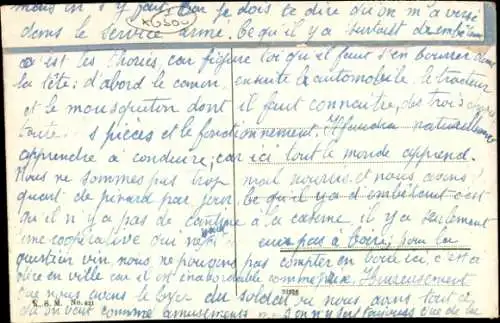 s'y fait. Car je dois te dire qu'on m'a versé
dans le service armé. Ce qu'il y a surtout
c'est les théories, car figure toi qu'il faut s'en bourrer dans
la tête: d'abord le canon, ensuite le automobile, le tracteur
et le mousqueton dont il faut connaître, des trois
toutes pièces et le fonctionnement. Il faudra naturellement
apprendre à conduire, car ici tout le monde apprend.
Nous ne sommes pas trop mal nourris et nous avons
quart de pinard par jour. Ce qu'il y a d'embêtant c'est
qu'il n'y a pas de cantine à la caserne il y a seulement
une coopérative qui pas à boire; pour la
question vin nous ne pouvons pas compter en boire ici, c'est à
dire en ville car il est inabordable comme prix. Heureusement
que nous avons le foyer du soldat où nous dans tout ce
qu'on veut comme amusements
No. 421